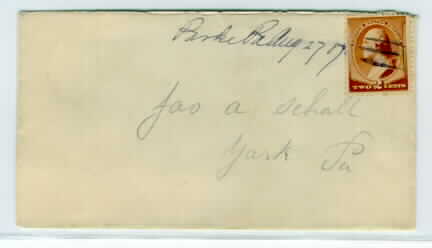 Parke Pa Aug 27 87
TWO 2 CENTS
Jao a Schall
York Pa